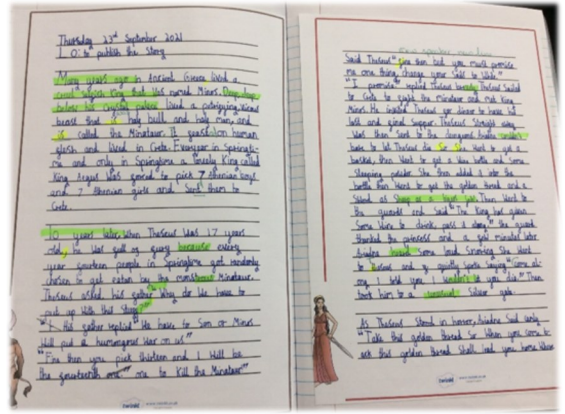 Thursday 23rd September 2021
LO: to publish the Story
Many years ago in Ancient Greece lived a
cruel selfish king that was named Minos. Deep, deep
below his crystal palace lived a petrifying, vicious
beast that half bull and half man, and
is called the Minotaur. It on human
glesh and lived in Crete. Everyyear in Springti-
me and only in Springtime a lonely King called
King Aegus was gorced to pick 7 Athenian boys
and 7 Athenian girls and Sent them to
Crete.
10 years later, When Theseus Was 17 years
old, he Was gull og gury because every
year gourteen people in Springtime got randomly
chosen to get eaten by the monstrous Minotaur.
Theseus asked his gather "Why do We have to
put up With this
His gather replied "We have to Son or Minos
Will put a humongous War on us"
"Fine then you pick thirteen and I Will be
the gourteenth one" one to kill the Minotaur"
Said Theseus "Fine then but you must promise
me one thing change your Sail to White"
"I promise" replied Theseus Sailed
to Crete to gight the minotaur and met King
Minos. He invited Theseus gor dinner to have his
last and ginal Supper. Theseus Straight away
Was then Sent to the dungeons
bare to let Theseus die So She Went to get a
basket, then Went to get a Wine bottle and Some
Sleeping powder. She then added it into the
bottle then Went to get the golden thread and a
Sword as Then Went to
the guards and Said "The King has given
Some Wine to drink, pass it along" the guards
thanked the princess and a gew minutes later
Ariadne heard Some loud Snoring. She Went
to Theseus and
me, I told you I Wouldn't let you die" Then
took him to a Silver gate.
As Theseus Stood in horror, Ariadne Said
"Take this golden thread So When you come to
ask this golden thread Shall lead you home Where
twinkl
twinkl